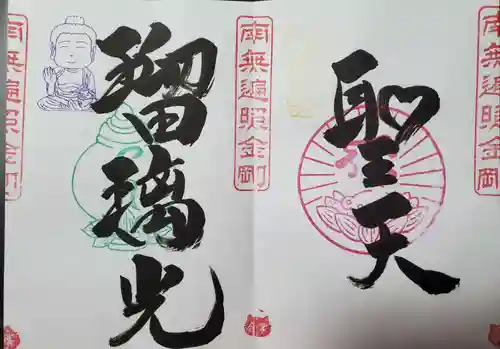 南無遍照金剛
聖天
南無遍照金剛
瑠璃光
南無遍照金剛